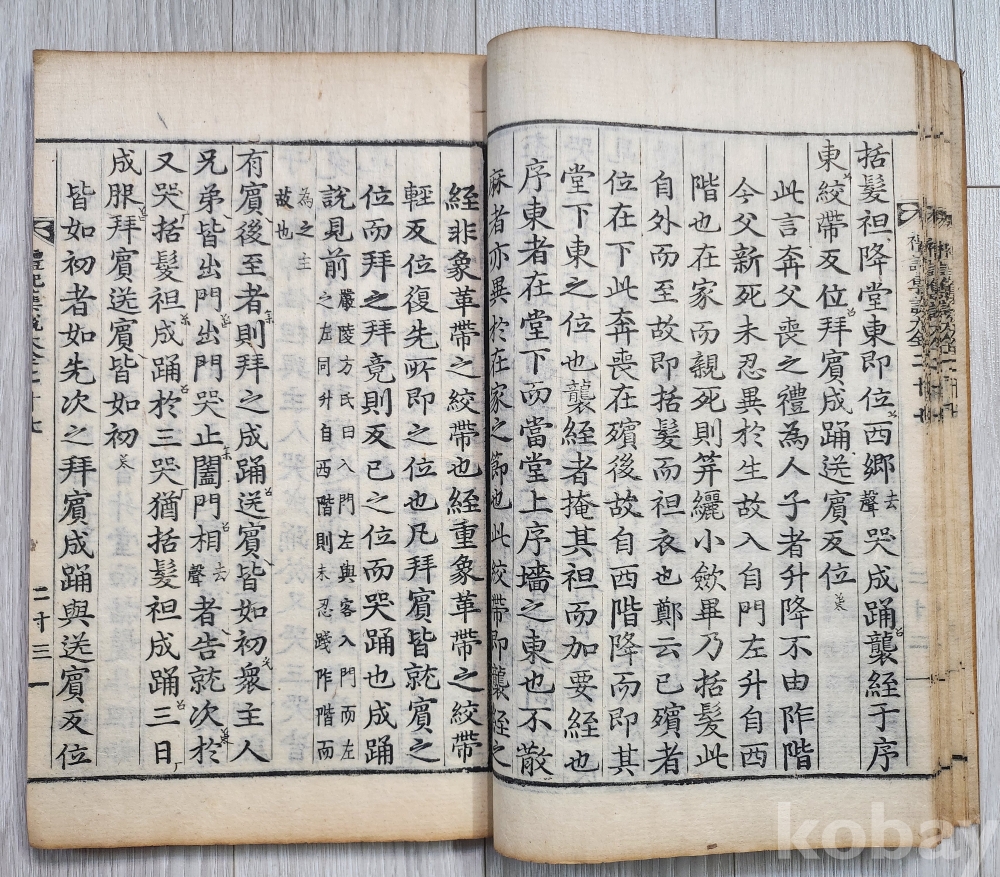 括髮袒降堂東即位西鄉去聲哭成踊襲絰于序
東絞帶反位拜賓成踊送賓反位
此言奔父喪之禮為人子者升降不由阼階
今父新死未忍異於生故入自門左升自西
階也在家而親死則笄纚小斂畢乃括髮此
自外而至故即括髮而袒衣也鄭云已殯者
位在下此奔喪在殯後故自西階降而即其
堂下東之位也襲絰者掩其袒而加要絰也
序東者在堂下而當堂上序墻之東也不散
麻者亦異於在家之節也此絞帶即襲絰之
絰非象革帶之絞帶也絰重象革帶之絞帶
輕反位復先所即之位也凡拜賓皆就賓之
位而拜之拜竟則反已之位而哭踊也成踊
說見前嚴陵方氏曰入門左與客入門而左
之左同升自西階則未忍踐阼階而
為之主
故也
有賓後至者則拜之成踊送賓皆如初衆主人
兄弟皆出門出門哭止闔門相去聲者告就次於
又哭括髮袒成踊於三哭猶括髮袒成踊三日
成服拜賓送賓皆如初
皆如初者如先次之拜賓成踊與送賓反位
禮記集說大全二十七
二十三
kobay